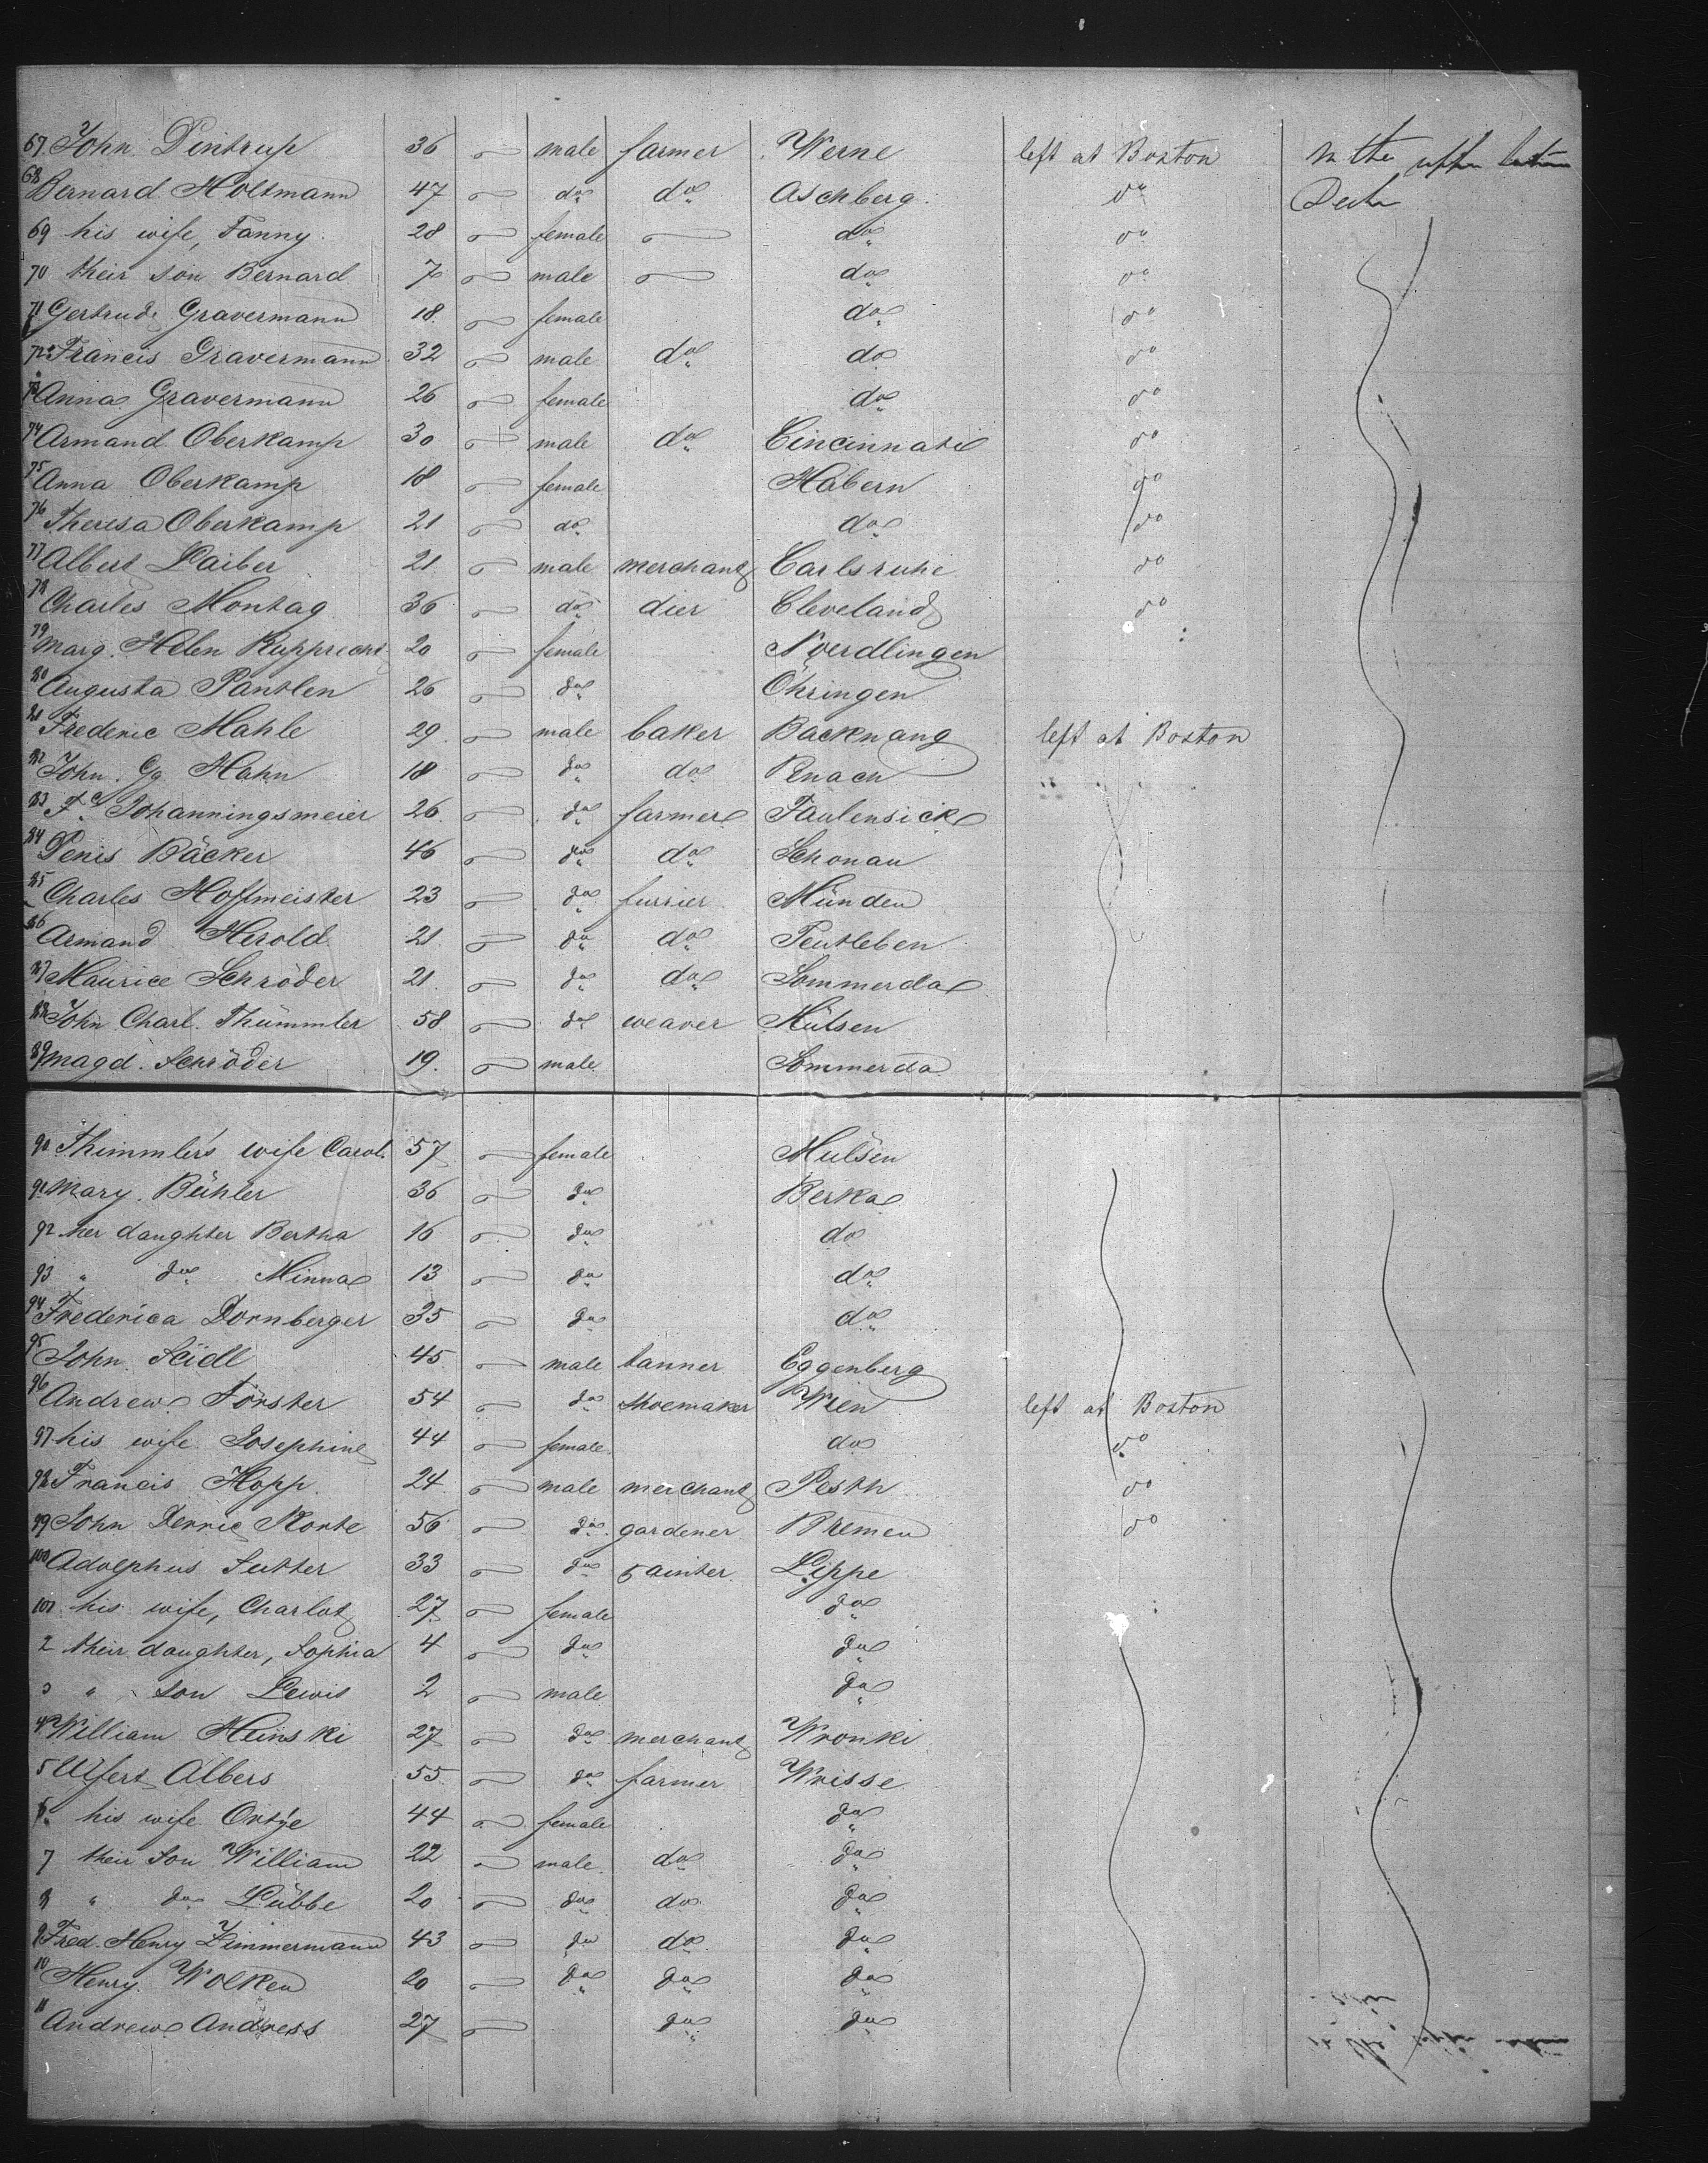 67 John Dintrup 36 male farmer Werne left at Boston In the upper
68 Bernard Holtmann 47 do do Aschberg do Deck
69 his wife, Fanny 28 female do do
70 their son Bernard 7 male do do
71 Gertrude Gravermann 18 female do do
72 Francis Gravermann 32 male do do do
73 Anna Gravermann 26 female do do
74 Armand Oberkamp 30 male do Cincinnati do
75 Anna Oberkamp 18 female Habern do
76 Theresa Oberkamp 21 do do do
77 Albert Laiber 21 male merchant Carlsruhe do
78 Charles Montag 36 do dier Cleveland do
79 Marg. Helen Rupprecht 20 female Noerdlingen
80 Augusta Pantlen 26 do Öhringen
81 Frederic Mahle 29 male baker Backnang left at Boston
82 John Gg Hahn 18 do do Penach " "
83 Fc Johanningsmeier 26 do farmer Faulensick
84 Denis Bäcker 46 do do Schonau
85 Charles Hoffmeister 23 do furrier Münden
86 Armand Herold 21 do do Teutleben
87 Maurice Schröder 21 do do Sommerda
88 John Charl. Thümmler 58 do weaver Hülsen
89 Magd. Schröder 19 male Sommerda
90 Thimmlers wife Carol. 57 female Mülsen
91 Mary Bühler 36 do Berka
92 her daughter Bertha 16 do do
93 " do Minna 13 do do
94 Frederica Dornberger 35 do do
95 John Seidl 45 male tanner Eggenberg
96 Andrew Förster 54 do shoemaker Wien left at Boston
97 his wife Josephine 44 female do do
98 Francis Hopp 24 male merchant Pesth do
99 John Derric Korte 56 do gardener Bremen do
100 Adolphus Sutter 33 do painter Lippe
101 his wife, Charlot 27 female do
2 their daughter, Sophia 4 do do
3 " son Lewis 2 male do
4 William Heinski 27 do merchant Wronki
5 Ulfert Albers 55 do farmer Wrisse
6 his wife Ortje 44 female do
7 their son William 22 male do do
8 " do Lübbe 20 do do do
9 Fred. Henry Zimmermann 43 do do do
10 Henry Wolken 20 do do do
11 Andrew Andress 27 do do